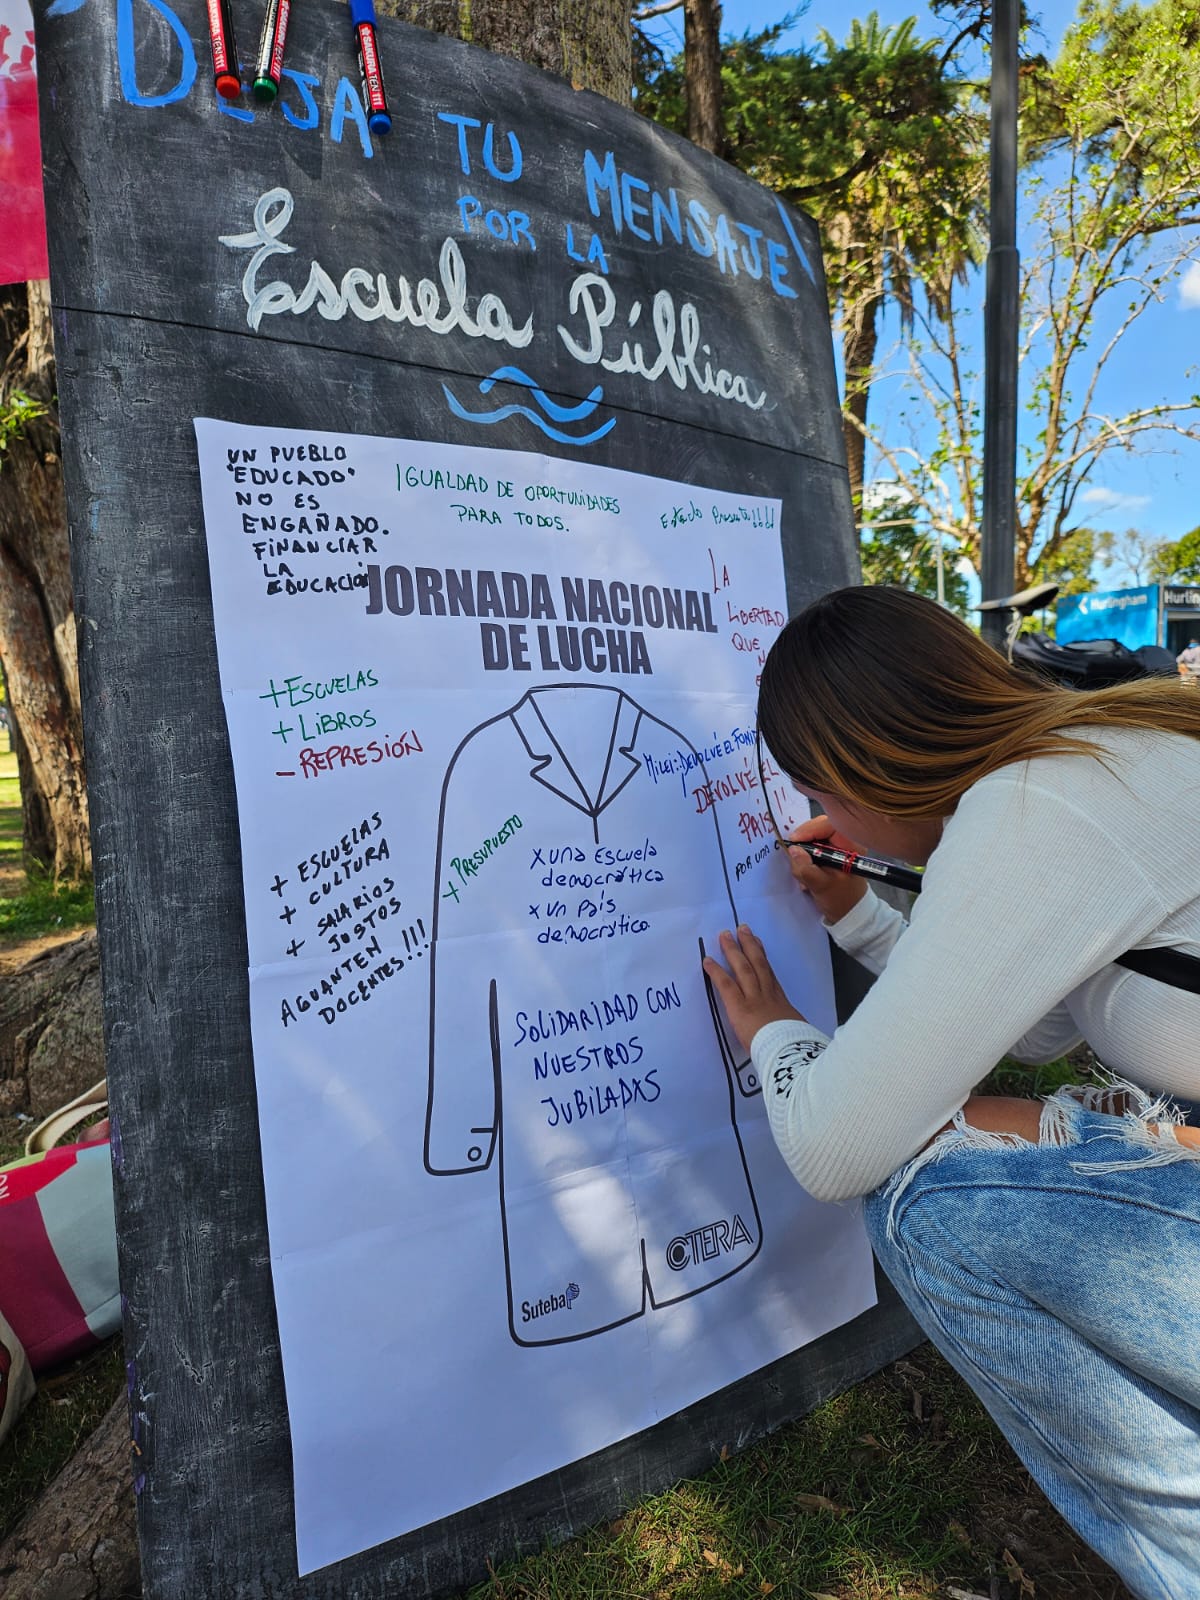 DEJA TU MENSAJE!
POR LA
Escuela Pública
SAKURA TEN 111
UN PUEBLO
"EDUCADO"
NO ES
ENGAÑADO.
FINANCIAR
LA
EDUCACIÓN
IGUALDAD DE OPORTUNIDADES
PARA TODOS.
Estado Presente!!!!
JORNADA NACIONAL
DE LUCHA
LA
LIBERTAD
QUE
+ ESCUELAS
+ LIBROS
- REPRESIÓN
MILEI: DEVOLVÉ EL
DEVOLVÉ EL
PAÍS!!
POR UNA
+ ESCUELAS
+ CULTURA
+ SALARIOS
JUSTOS
AGUANTEN
DOCENTES!!!
+ PRESUPUESTO
x una Escuela
democrática
x un país
democrático.
SOLIDARIDAD CON
NUESTROS
JUBILADXS
Suteba
CTERA
Hurlingham